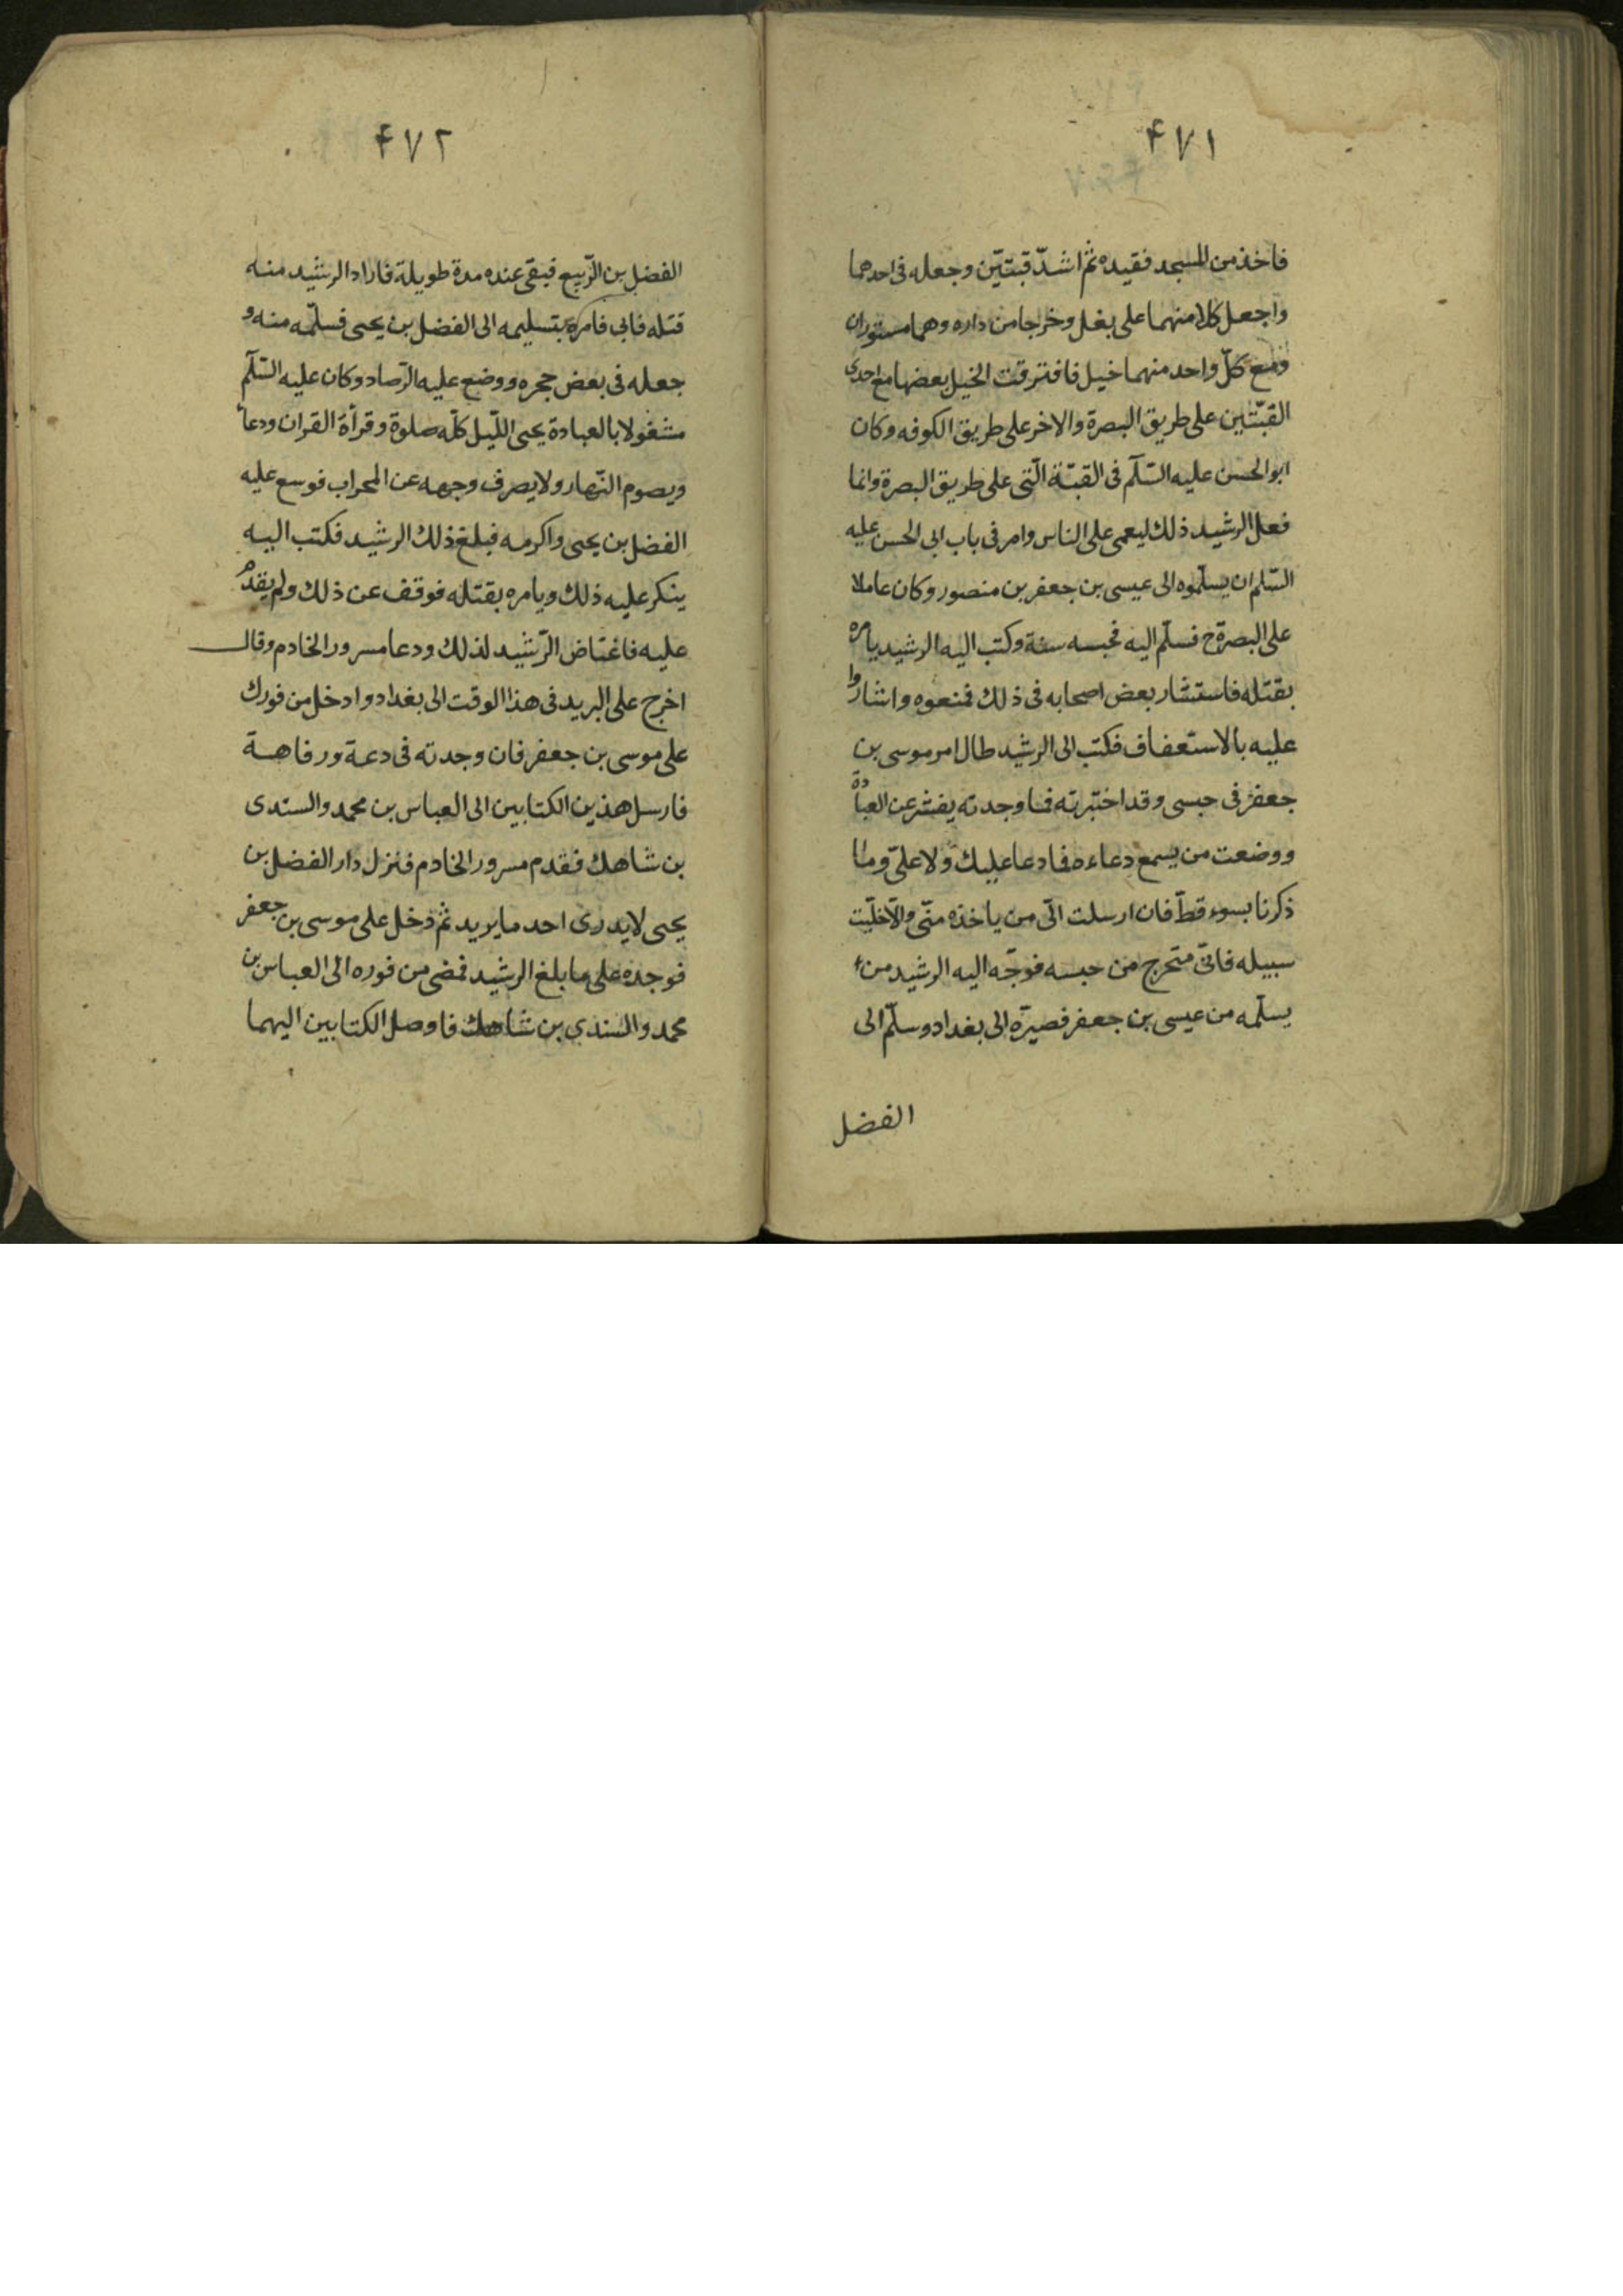 ۴۷۱
فاخذ من المسجد فقيده ثم اشدّ قبتيّن وجعله فى احدهما
واجعل كلا منهما على بغل وخرجا من داره وهما مستوران
ومع كلّ واحد منهما خيل فافترقت الخيل بعضها مع احدى
القبّتين على طريق البصرة والاخر على طريق الكوفه وكان
ابو الحسن عليه السّلم فى القبّة الّتى على طريق البصرة وانما
فعل الرشيد ذلك ليعمى على الناس وامر فى باب ابى الحسن عليه
السّلم ان يسلّموه الى عيسى بن جعفر بن منصور وكان عاملا
على البصرة ح فسلّم اليه فحبسه سنة وكتب اليه الرشيد يامره
بقتله فاستشار بعض اصحابه فى ذلك فمنعوه واشاروا
عليه بالاستعفاف فكتب الى الرشيد طال امر موسى بن
جعفر فى حبسى وقد اختبرته فما وجدته يفتر عن العبادة
ووضعت من يسمع دعاءه فما دعا عليك ولا علىّ وما
ذكرنا بسوء قطّ فان ارسلت الىّ من ياخذه منّى والّا خلّيت
سبيله فانّى متحرج من حبسه فوجّه اليه الرشيد من
يسلّمه من عيسى بن جعفر فصيرّه الى بغداد وسلّم الى
الفضل
۴۷۲
الفضل بن الرّبيع فبقى عنده مدة طويلة فاراد الرشيد منه
قتله فابى فامره بتسليمه الى الفضل بن يحيى فسلّمه منه و
جعله فى بعض حجره ووضع عليه الرّصاد وكان عليه السّلم
مشغولا بالعبادة يحيى اللّيل كلّه صلوة وقرأة القران ودعاء
ويصوم النّهار ولا يصرف وجهه عن المحراب فوسع عليه
الفضل بن يحيى واكرمه فبلغ ذلك الرشيد فكتب اليه
ينكر عليه ذلك ويامره بقتله فوقف عن ذلك ولم يقدم
عليه فاغتاض الرّشيد لذلك ودعا مسرور الخادم وقال
اخرج على البريد فى هذا الوقت الى بغداد وادخل من فورك
على موسى بن جعفر فان وجدته فى دعة ورفاهة
فارسل هذين الكتابين الى العباس بن محمد والسندى
بن شاهك فقدم مسرور الخادم فنزل دار الفضل بن
يحيى لا يدرى احد ما يريد ثم دخل على موسى بن جعفر
فوجده على ما بلغ الرشيد فمضى من فوره الى العباس بن
محمد والسندى بن شاهك فاوصل الكتابين اليهما